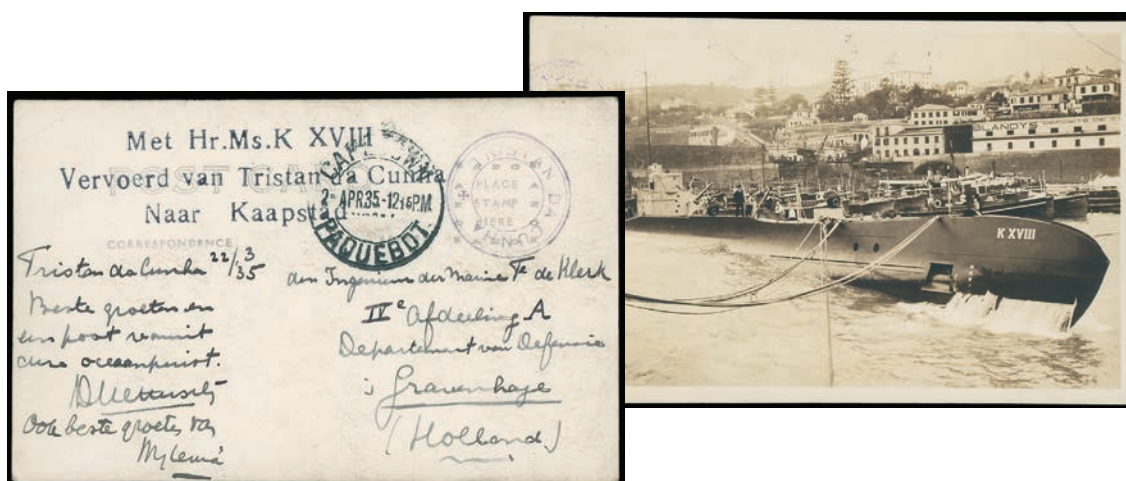 Met Hr.Ms.K XVIII
Vervoerd van Tristan da Cunha
Naar Kaapstad
POST CARD
CAPE TOWN
2-APR35-1215PM
PAQUEBOT.
TRISTAN DA CUNHA
PLACE
STAMP
HERE
CORRESPONDENCE
Tristan da Cunha 22/3 35
Beste groeten en
een post vanuit
oceaanpunt.
Ook beste groeten van
den Ingenieur der Marine Te de Klerk
IVe Afdeeling A
Departement van Defensie
's Gravenhage
(Holland)
BLANDYS
K XVIII